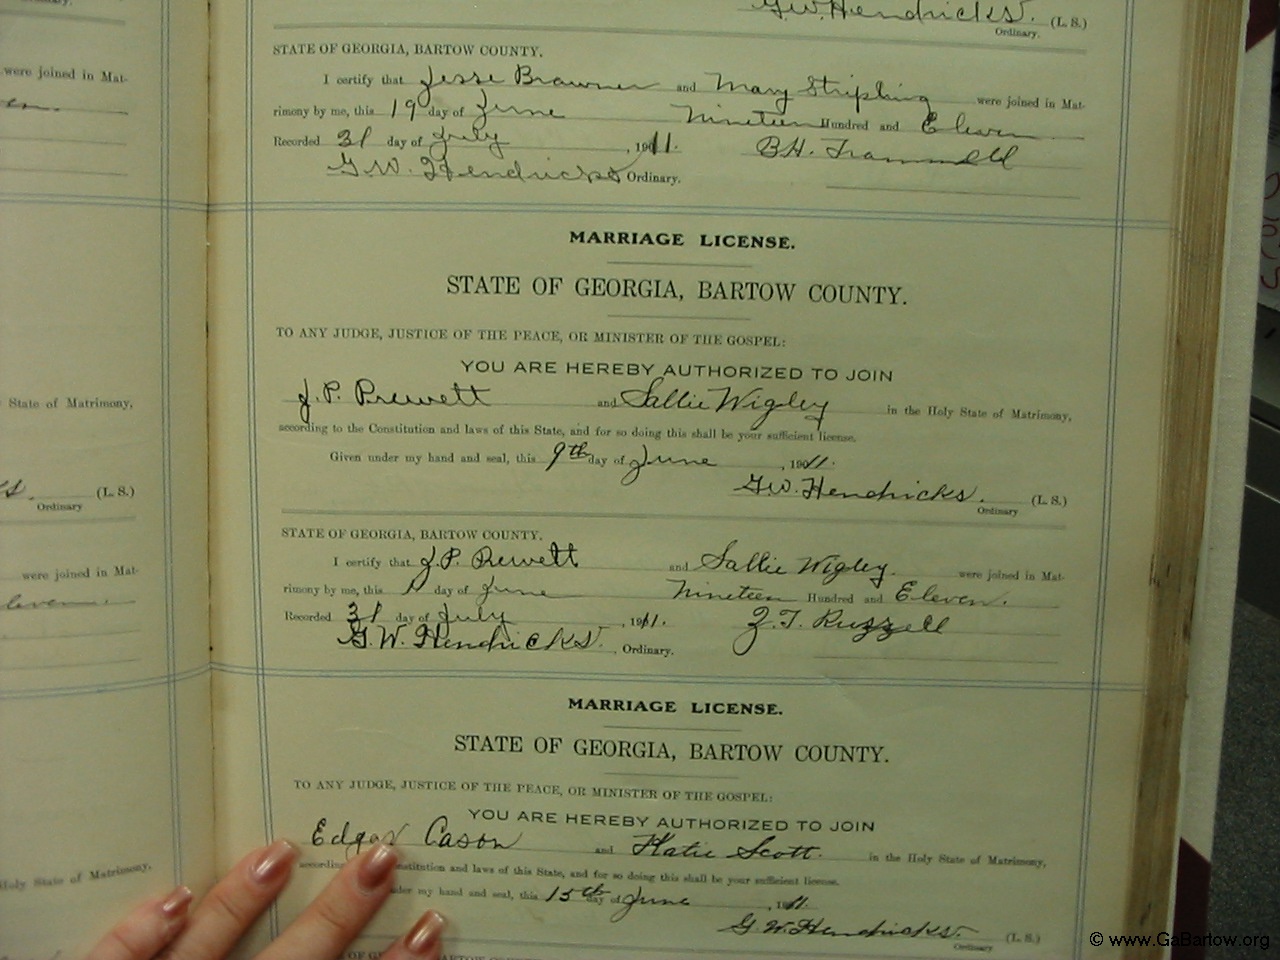 G.W. Hendricks. (L. S.)
Ordinary.
were joined in Mat-
STATE OF GEORGIA, BARTOW COUNTY.
I certify that Jesse Brawner and Mary Stripling were joined in Mat-
rimony by me, this 19 day of June Nineteen Hundred and Eleven
Recorded 31 day of July, 1911. B.H. Trammell
G.W. Hendricks Ordinary.
MARRIAGE LICENSE.
STATE OF GEORGIA, BARTOW COUNTY.
TO ANY JUDGE, JUSTICE OF THE PEACE, OR MINISTER OF THE GOSPEL:
YOU ARE HEREBY AUTHORIZED TO JOIN
State of Matrimony,
J.P. Prewett and Sallie Wigley in the Holy State of Matrimony,
according to the Constitution and laws of this State, and for so doing this shall be your sufficient license.
Given under my hand and seal, this 9th day of June, 1911.
(L. S.)
Ordinary
G.W. Hendricks. (L. S.)
Ordinary
STATE OF GEORGIA, BARTOW COUNTY.
were joined in Mat-
I certify that J.P. Prewett and Sallie Wigley were joined in Mat-
rimony by me, this 11 day of June Nineteen Hundred and Eleven.
Recorded 31 day of July, 1911. Z.T. Ruzzell
G.W. Hendricks. Ordinary.
MARRIAGE LICENSE.
STATE OF GEORGIA, BARTOW COUNTY.
TO ANY JUDGE, JUSTICE OF THE PEACE, OR MINISTER OF THE GOSPEL:
YOU ARE HEREBY AUTHORIZED TO JOIN
Holy State of Matrimony,
Edgar Cason and Katie Scott. in the Holy State of Matrimony,
according nstitution and laws of this State, and for so doing this shall be your sufficient license.
nder my hand and seal, this 15th day of June, 1911.
G.W. Hendricks. (L. S.)
Ordinary
© www.GaBartow.org